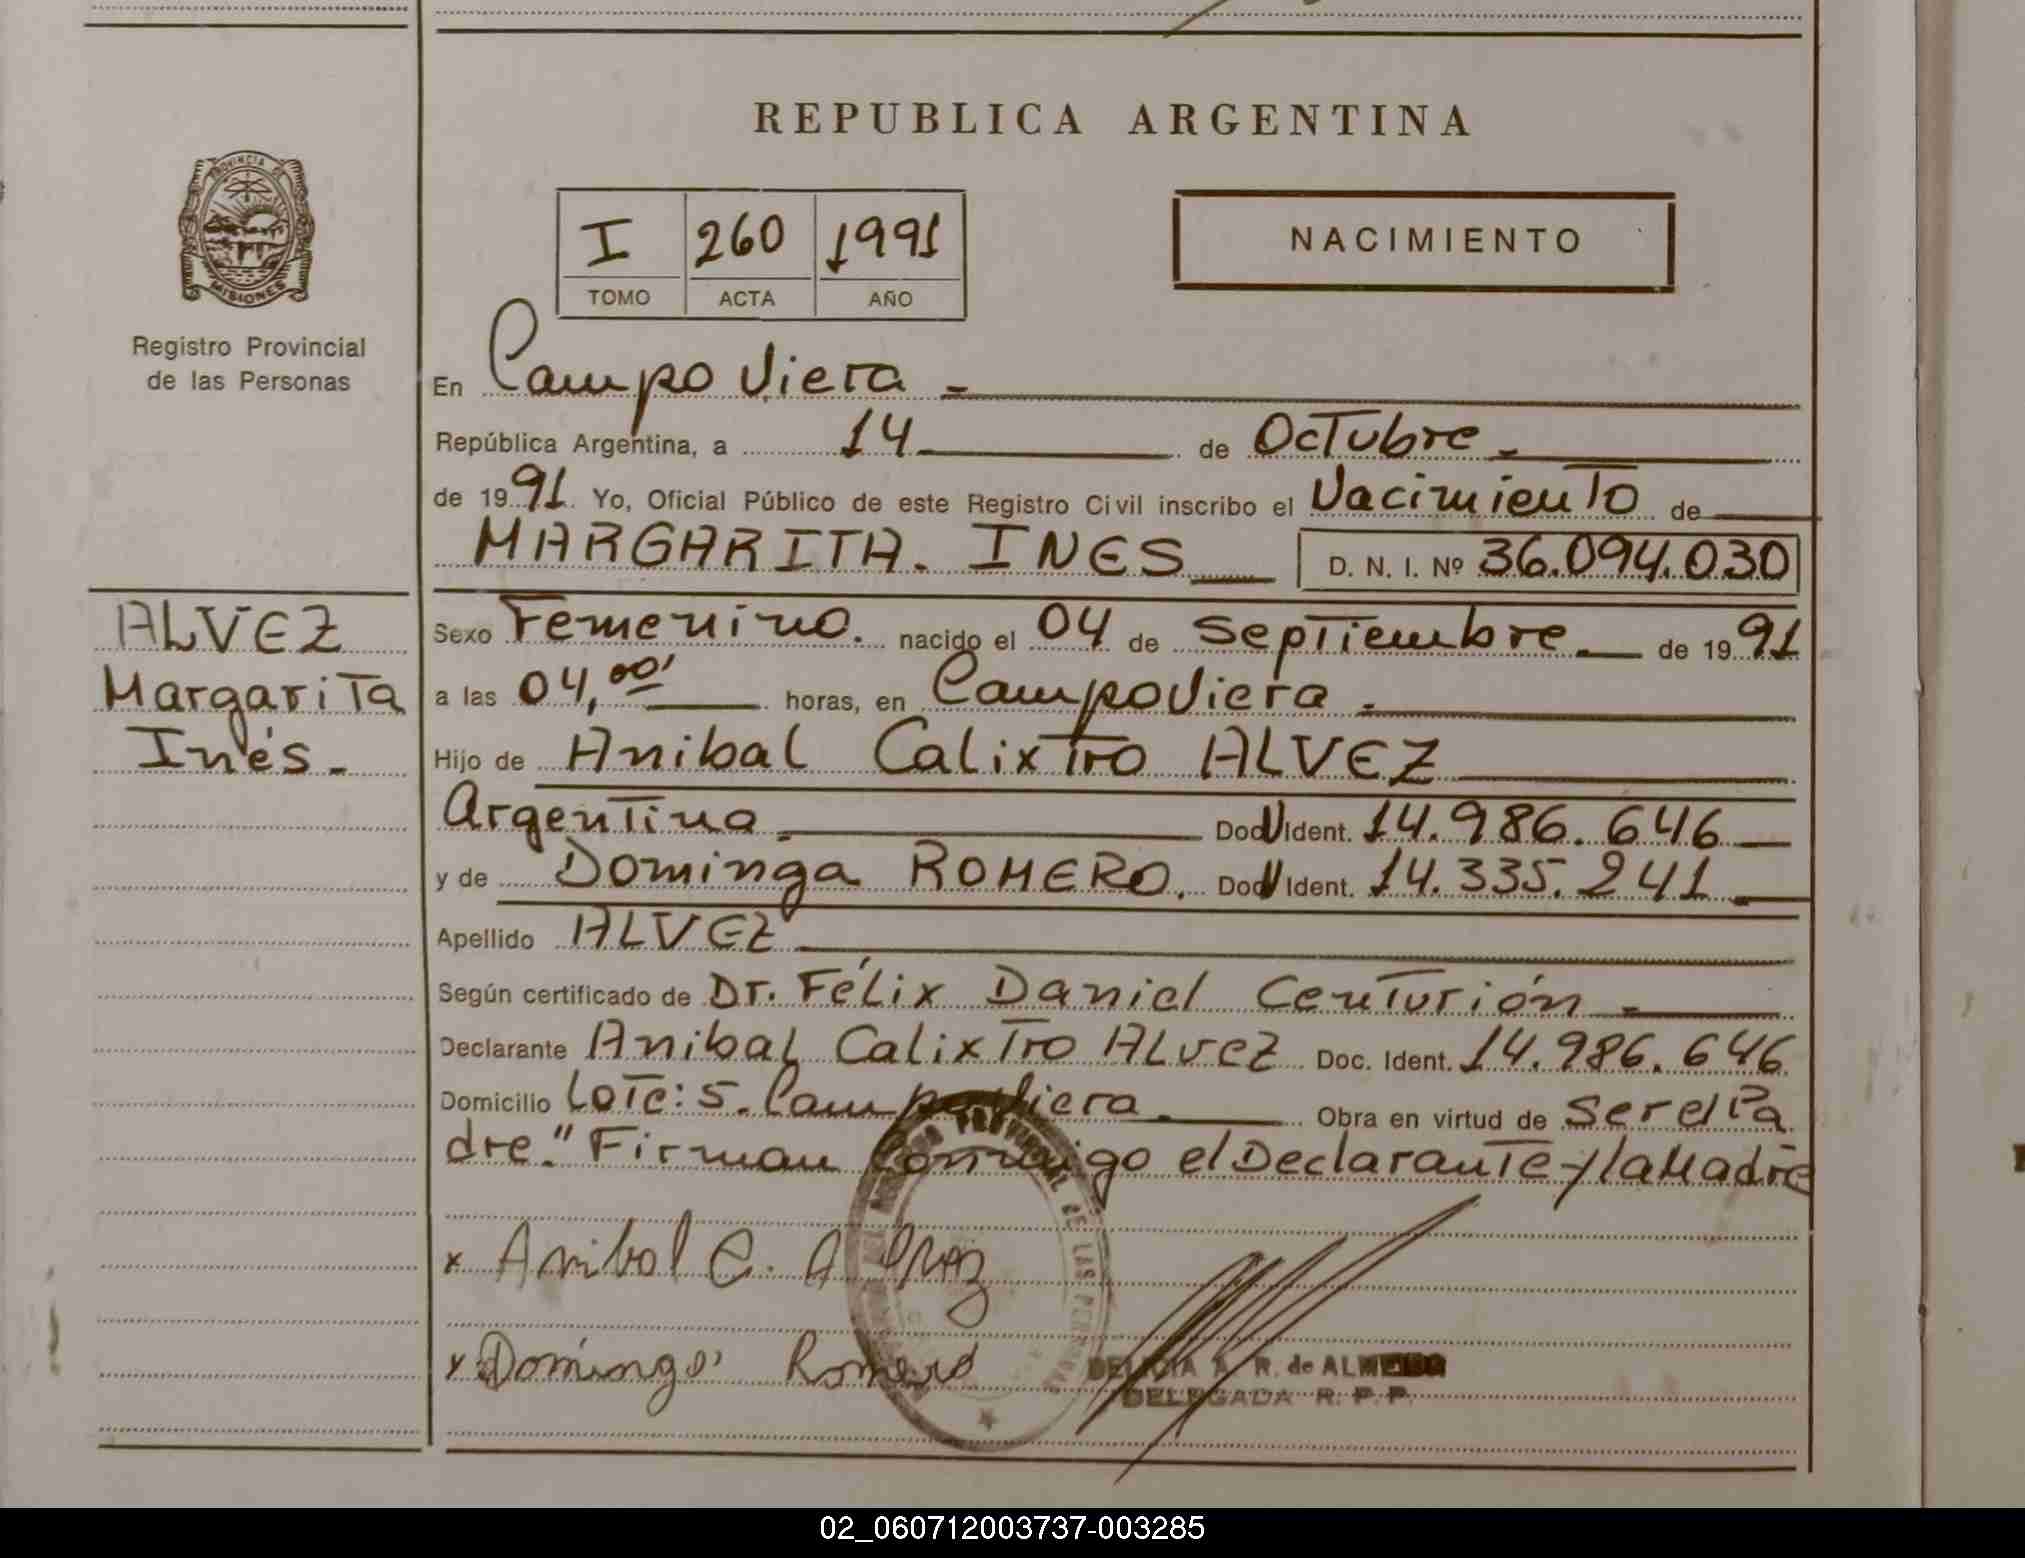 REPUBLICA ARGENTINA
PROVINCIA DE
MISIONES
Registro Provincial
de las Personas
I 260 1991
TOMO ACTA AÑO
NACIMIENTO
En Campo Viera -
República Argentina, a 14 de Octubre -
de 1991 Yo, Oficial Público de este Registro Civil inscribo el Nacimiento de
MARGARITA. INES D. N. I. Nº 36.094.030
ALVEZ
Margarita
Inés -
Sexo Femenino. nacido el 04 de Septiembre de 1991
a las 04,00' horas, en Campo Viera -
Hijo de Anibal Calixtro ALVEZ
Argentina - Doc Ident. 14.986.646
y de Dominga ROMERO. Doc Ident. 14.335.241
Apellido ALVEZ
Según certificado de Dr. Félix Daniel Centurión -
Declarante Anibal Calixtro ALvez Doc. Ident. 14.986.646
Domicilio Lote: 5. Campo Viera - Obra en virtud de ser el Pa
dre." Firman Conmigo el Declarante y la Madre
x Anibal C. Alvez
x Dominga Romero
PROVINCIAL DE LAS PERSONAS
DELICIA A. R. de ALMEIDA
DELEGADA R. P. P.
02_060712003737-003285